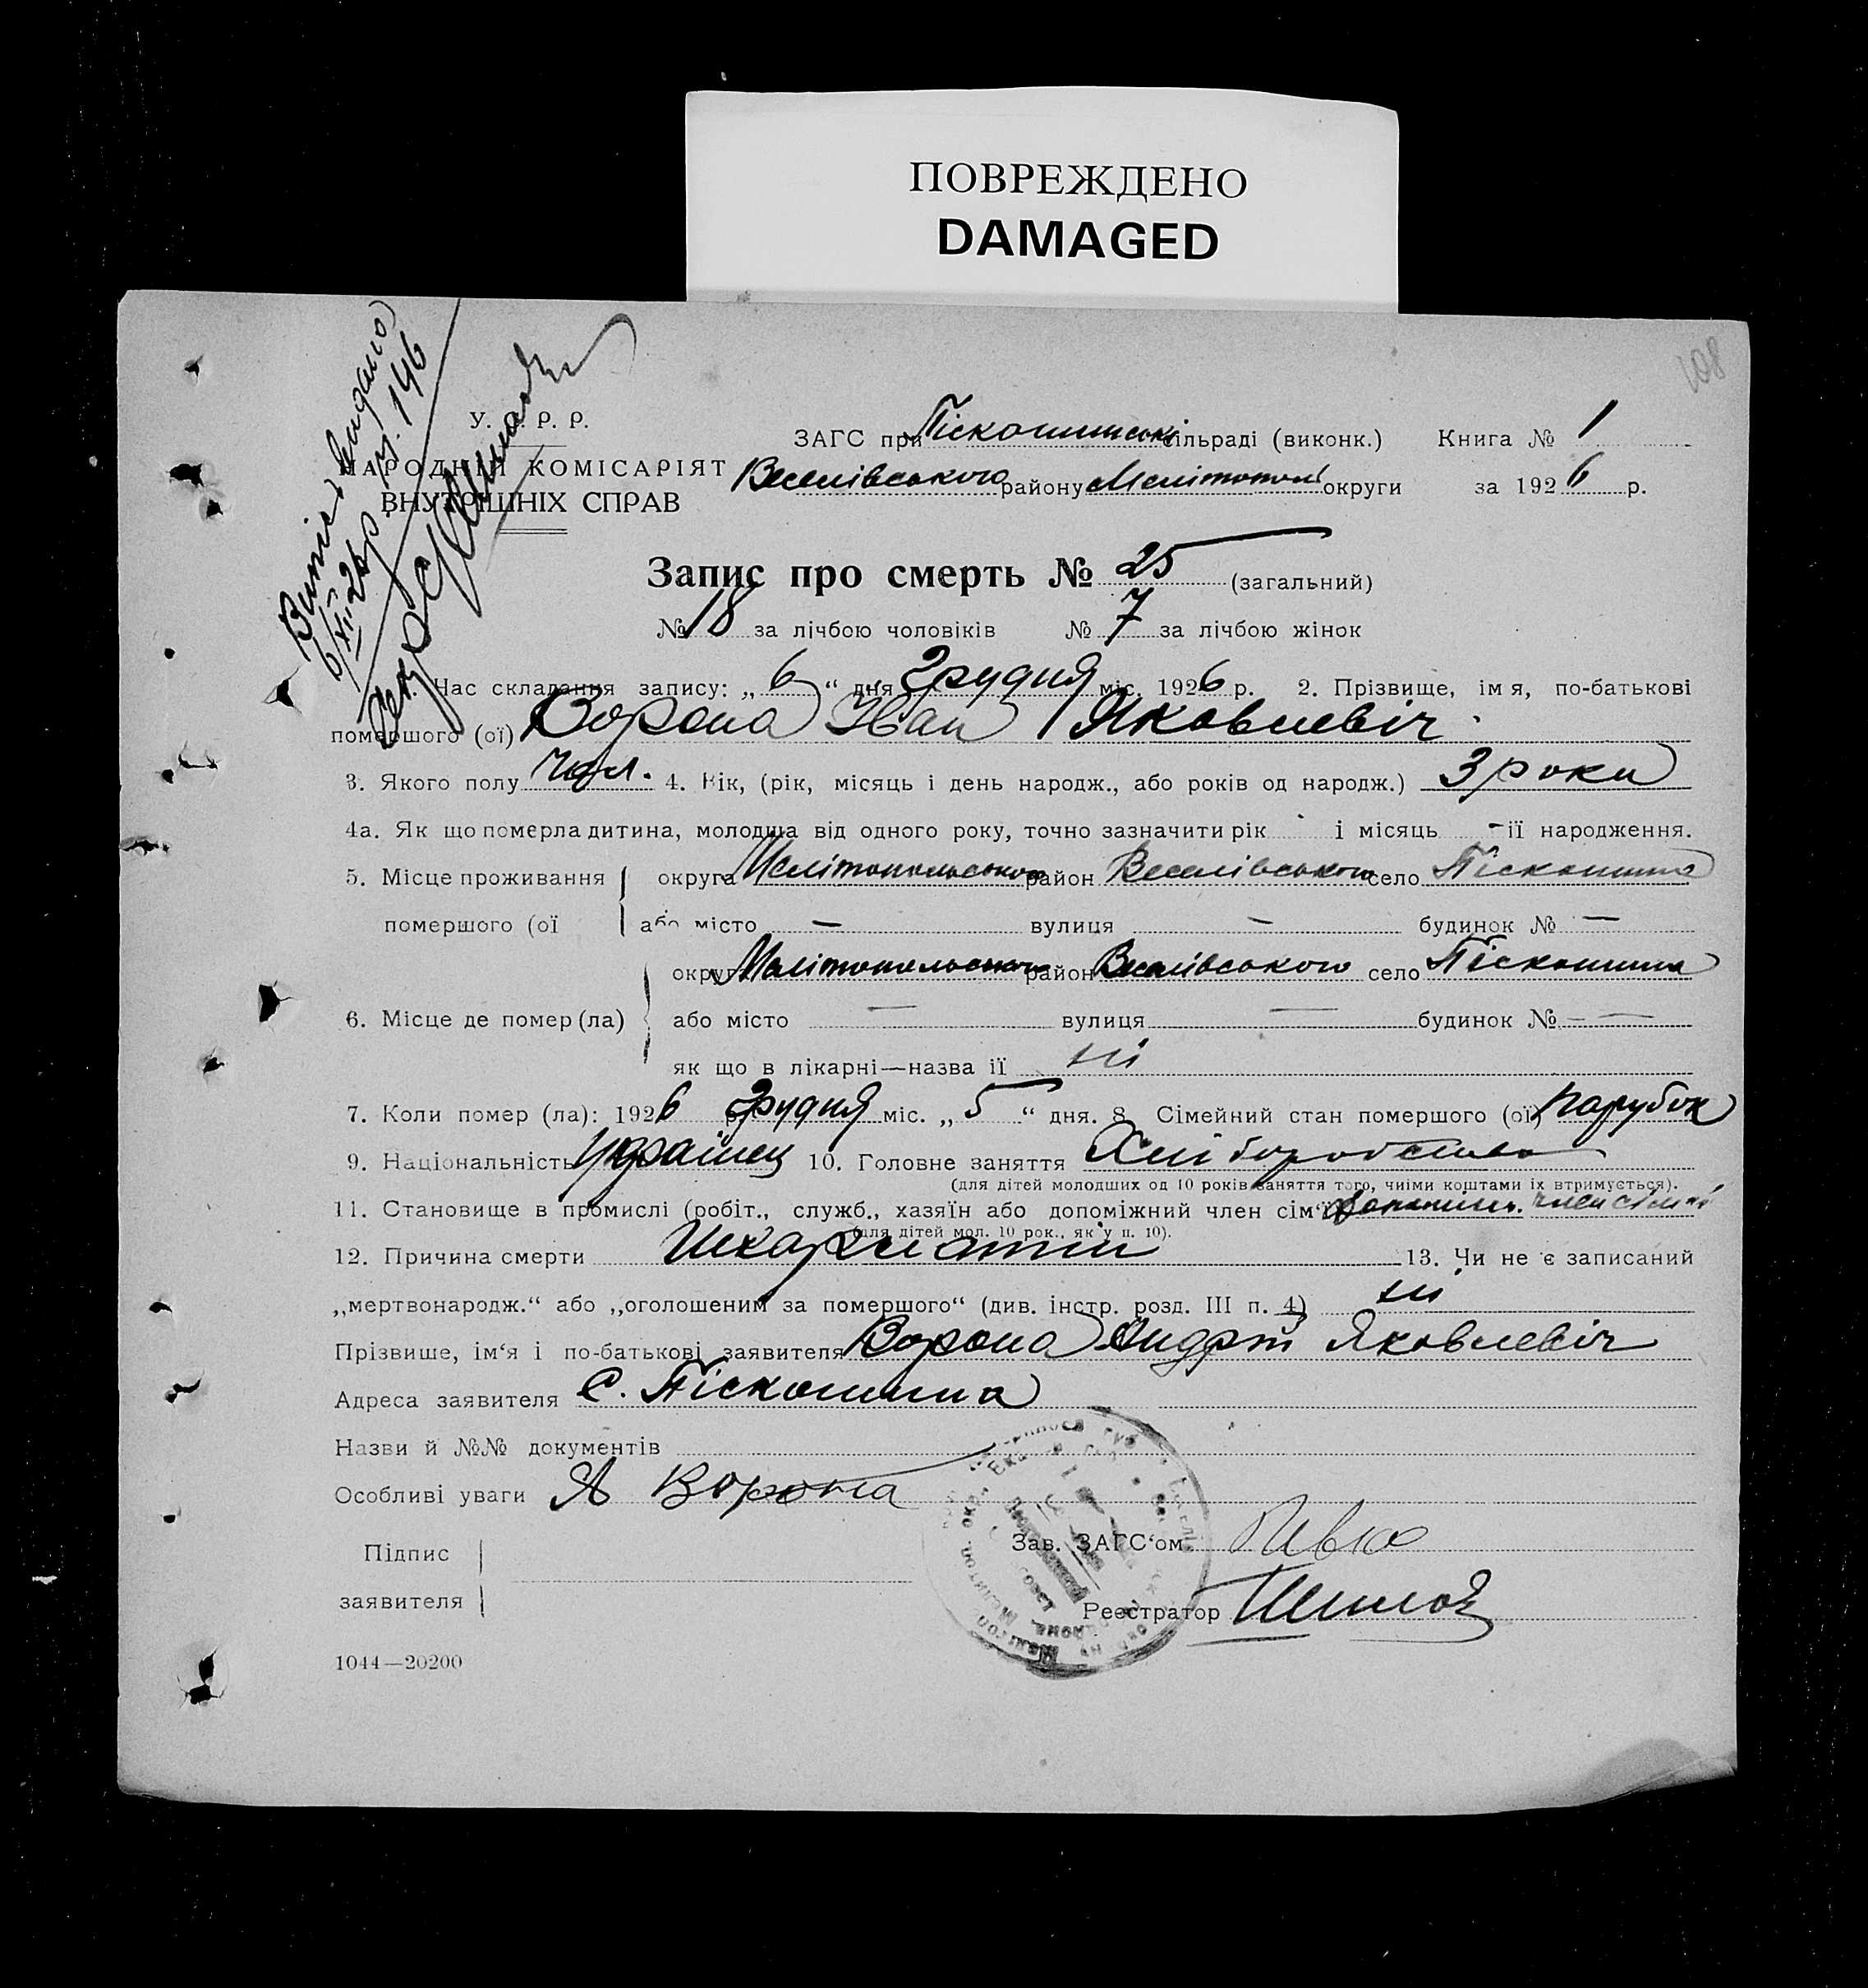 ПОВРЕЖДЕНО
DAMAGED
108
Випис видано
6/XII-26р 146
У. С. Р. Р.
НАРОДНІЙ КОМІСАРІЯТ
ВНУТРІШНІХ СПРАВ
ЗАГС при Піскошинські сільраді (виконк.) Книга № 1
Веселівського району Мелітополь округи за 1926 р.
Запис про смерть № 25 (загальний)
№ 18 за лічбою чоловіків № 7 за лічбою жінок
Час складання запису: „ 6 “ дня Грудня міс. 1926 р. 2. Прізвище, імя, по-батькові
помершого (ої) Ворона Іван Яковлевіч
3. Якого полу Чол. 4. Вік, (рік, місяць і день народж., або років од народж.) 3 роки
4а. Як що померла дитина, молодша від одного року, точно зазначити рік - і місяць - ії народження.
5. Місце проживання округа Мелітопольського район Веселівського село Піскошина
помершого (ої або місто — вулиця — будинок № —
округа Мелітопольського район Веселівського село Піскошина
6. Місце де помер (ла) або місто — вулиця — будинок № — —
як що в лікарні—назва ії ні
7. Коли помер (ла): 1926 р. Грудня міс. „ 5 “ дня. 8. Сімейний стан помершого (ої) парубок
9. Національність Українец 10. Головне заняття Хліборобство
(для дітей молодших од 10 років заняття того, чиіми коштами іх втримується).
11. Становище в промислі (робіт., служб., хазяїн або допоміжний член сім'ї) допоміжн. член сімьі
(для дітей мол. 10 рок., як у п. 10).
12. Причина смерти Шкарлатін 13. Чи не є записаний
„мертвонародж.“ або „оголошеним за помершого“ (див. інстр. розд. III п. 4) ні
Прізвише, ім‘я і по-батькові заявителя Ворона Яковлевіч
Адреса заявителя С. Піскошина
Назви й №№ документів
Особливі уваги А Ворона
Підпис
заявителя
Зав. ЗАГС‘ом
Реєстратор
1044—20200